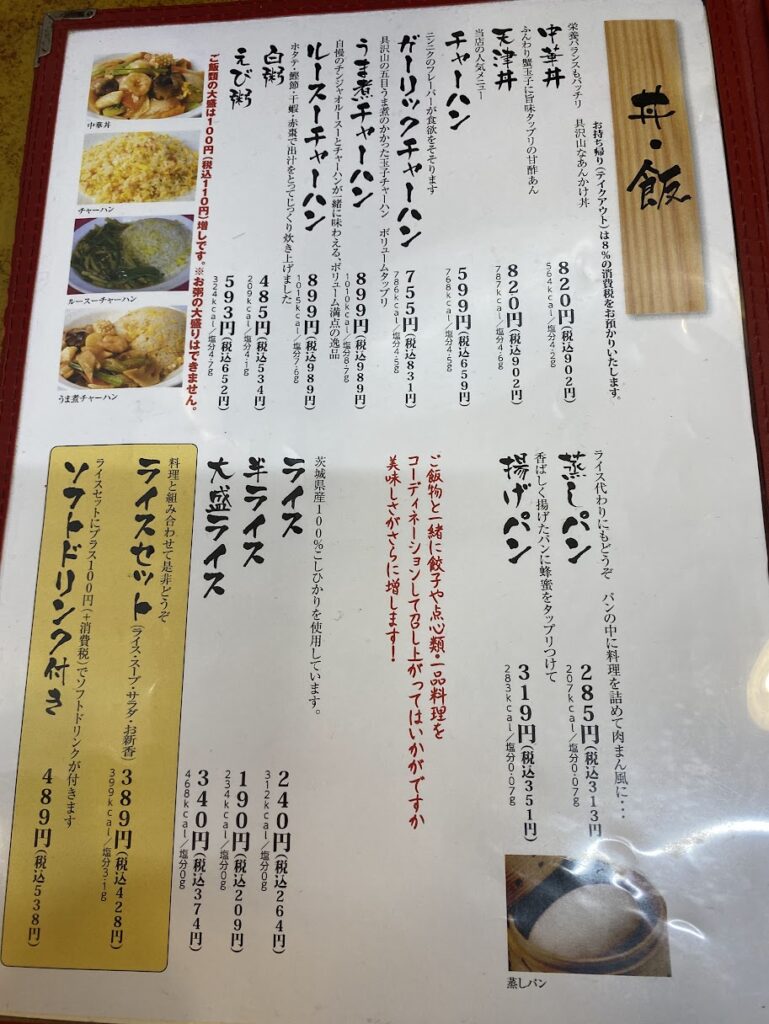 丼・飯
お持ち帰り(テイクアウト)は8%の消費税をお預かりいたします。
栄養バランスもバッチリ 具沢山なあんかけ丼
中華丼
820円(税込902円)
564kcal/塩分4.2g
ふんわり蟹玉子に旨味タップリの甘酢あん
天津丼
820円(税込902円)
787kcal/塩分4.6g
当店の人気メニュー
チャーハン
599円(税込659円)
768kcal/塩分4.5g
ニンニクのフレーバーが食欲をそそります
ガーリックチャーハン
755円(税込831円)
786kcal/塩分4.5g
具沢山の五目うま煮のかかった玉子チャーハン ボリュームタップリ
うま煮チャーハン
899円(税込989円)
1010kcal/塩分8.7g
自慢のチンジャオルースーとチャーハンが一緒に味わえる、ボリューム満点の逸品
ルースーチャーハン
899円(税込989円)
1015kcal/塩分7.6g
ホタテ・鰹節・干蝦・赤棗で出汁をとってじっくり炊き上げました
白粥
485円(税込534円)
209kcal/塩分4.1g
えび粥
593円(税込652円)
324kcal/塩分4.7g
ご飯類の大盛は100円(税込110円)増しです。※お粥の大盛りはできません。
中華丼
チャーハン
ルースーチャーハン
うま煮チャーハン
ライス代わりにもどうぞ パンの中に料理を詰めて肉まん風に・・・
蒸しパン
285円(税込313円)
207kcal/塩分0.07g
香ばしく揚げたパンに蜂蜜をタップリつけて
揚げパン
319円(税込351円)
283kcal/塩分0.07g
蒸しパン
ご飯物と一緒に餃子や点心類・一品料理を
コーディネーションして召し上がってはいかがですか
美味しさがさらに増します!
茨城県産100%こしひかりを使用しています。
ライス
240円(税込264円)
312kcal/塩分0g
半ライス
190円(税込209円)
234kcal/塩分0g
大盛ライス
340円(税込374円)
468kcal/塩分0g
料理と組み合わせて是非どうぞ
ライスセット(ライス・スープ・サラダ・お新香)
389円(税込428円)
399kcal/塩分3.1g
ライスセットにプラス100円(+消費税)でソフトドリンクが付きます
ソフトドリンク付き
489円(税込538円)